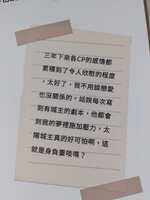 三年下來各CP的感情都
累積到了令人欣慰的程度
,太好了,我不用談戀愛
也沒關係的。話說每次寫
到有城主的劇本,他都會
到我的夢裡施加壓力,太
陽城主真的好可怕啊,這
就是身負重唸嗎?